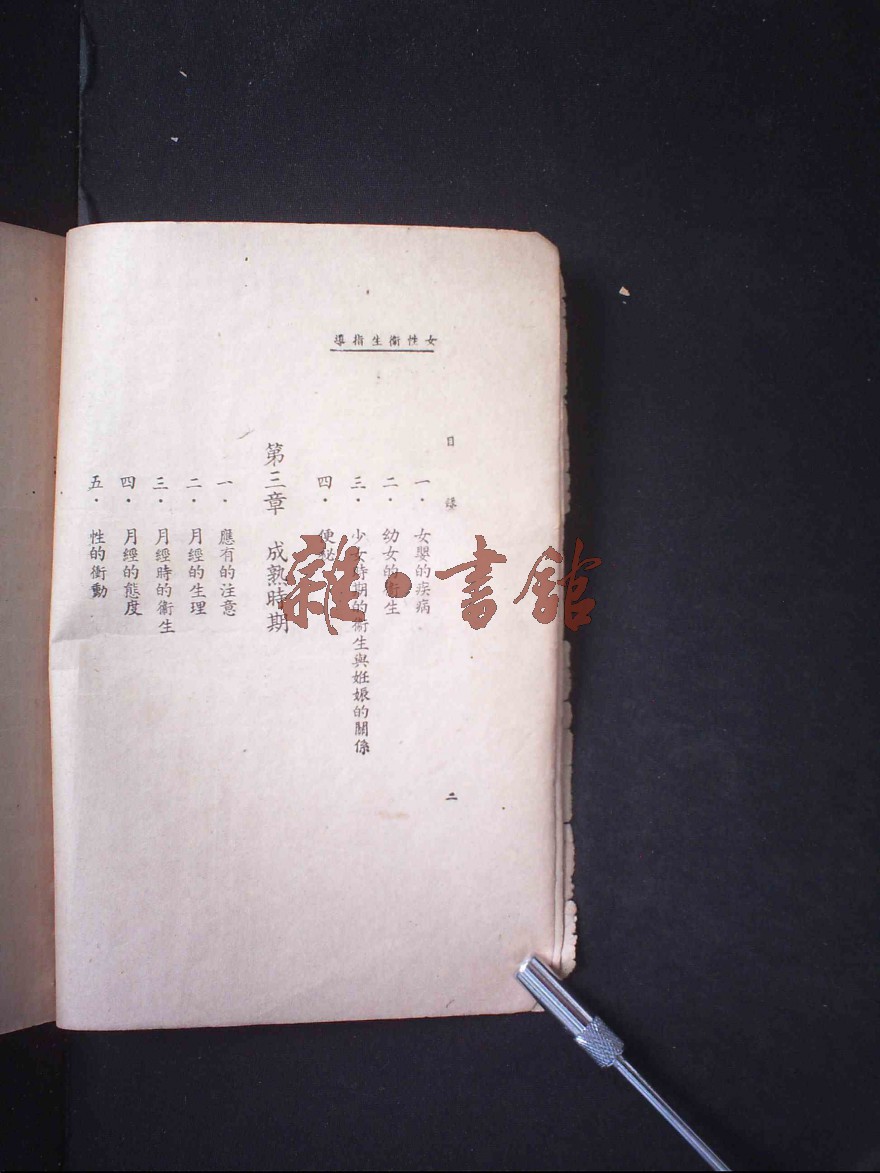 女性衞生指導
目錄
一・女嬰的疾病
二・幼女的衞生
三・少女時期的衞生與妊娠的關係
四・便祕
第三章 成熟時期
一・應有的注意
二・月經的生理
三・月經時的衞生
四・月經的態度
五・性的衝動
二
雜・書館